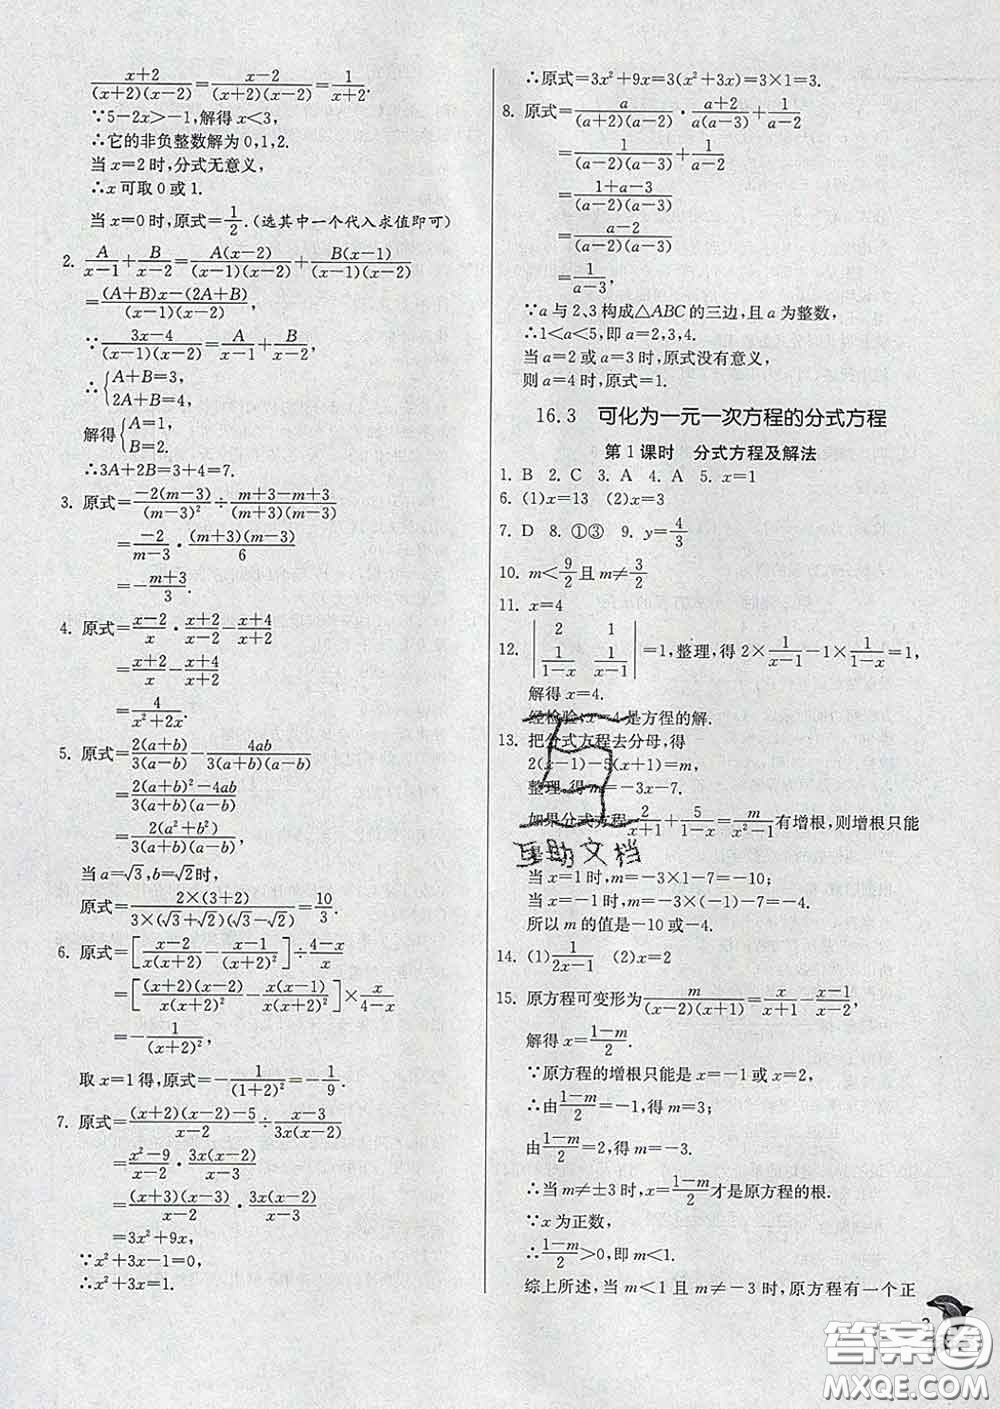 (x+2)/((x+2)(x-2))=(x-2)/((x+2)(x-2))=1/(x+2).
∵5-2x>-1,解得x<3,
∴它的非负整数解为0,1,2.
当x=2时,分式无意义,
∴x可取0或1.
当x=0时,原式=1/2.(选其中一个代入求值即可)
2. A/(x-1)+B/(x-2)=A(x-2)/((x-1)(x-2))+B(x-1)/((x-1)(x-2))
=((A+B)x-(2A+B))/((x-1)(x-2)),
∵(3x-4)/((x-1)(x-2))=A/(x-1)+B/(x-2),
∴{A+B=3,
2A+B=4,
解得{A=1,
B=2.
∴3A+2B=3+4=7.
3. 原式=-2(m-3)/(m-3)²÷(m+3-m+3)/((m+3)(m-3))
=-2/(m-3)·(m+3)(m-3)/6
=-(m+3)/3.
4. 原式=(x-2)/x·(x+2)/(x-2)-(x+4)/(x+2)
=(x+2)/x-(x+4)/(x+2)
=4/(x²+2x).
5. 原式=2(a+b)/(3(a-b))-4ab/(3(a+b)(a-b))
=(2(a+b)²-4ab)/(3(a+b)(a-b))
=2(a²+b²)/(3(a+b)(a-b)),
当a=√3,b=√2时,
原式=2×(3+2)/(3×(√3+√2)(√3-√2))=10/3.
6. 原式=[(x-2)/(x(x+2))-(x-1)/(x+2)²]÷(4-x)/x
=[(x+2)(x-2)/(x(x+2)²)-x(x-1)/(x(x+2)²)]×x/(4-x)
=-1/(x+2)²,
取x=1得,原式=-1/(1+2)²=-1/9.
7. 原式=((x+2)(x-2)-5)/(x-2)÷(x-3)/(3x(x-2))
=(x²-9)/(x-2)·3x(x-2)/(x-3)
=(x+3)(x-3)/(x-2)·3x(x-2)/(x-3)
=3x²+9x,
∵x²+3x-1=0,
∴x²+3x=1.
∴原式=3x²+9x=3(x²+3x)=3×1=3.
8. 原式=a/((a+2)(a-2))·(a+2)/(a(a-3))+1/(a-2)
=1/((a-2)(a-3))+1/(a-2)
=(1+a-3)/((a-2)(a-3))
=(a-2)/((a-2)(a-3))
=1/(a-3),
∵a与2、3构成△ABC的三边,且a为整数,
∴1<a<5,即a=2,3,4.
当a=2或a=3时,原式没有意义,
则a=4时,原式=1.
16.3 可化为一元一次方程的分式方程
第1课时 分式方程及解法
1. B 2. C 3. A 4. A 5. x=1
6. (1)x=13 (2)x=3
7. D 8. ①③ 9. y=4/3
10. m<9/2且m≠3/2
11. x=4
12. |2 1; 1/(1-x) 1/(1-x)|=1,整理,得2×1/(x-1)-1×1/(1-x)=1,
解得x=4.
经检验,x=4是方程的解.
13. 把分式方程去分母,得
2(x-1)-5(x+1)=m,
整理,得m=-3x-7.
如果分式方程2/(x+1)+5/(1-x)=m/(x²-1)有增根,则增根只能
互助文档
当x=1时,m=-3×1-7=-10;
当x=-1时,m=-3×(-1)-7=-4.
所以m的值是-10或-4.
14. (1)1/(2x-1) (2)x=2
15. 原方程可变形为m/((x-2)(x+1))=x/(x+1)-(x-1)/(x-2),
解得x=(1-m)/2.
∵原方程的增根只能是x=-1或x=2,
∴由(1-m)/2=-1,得m=3;
由(1-m)/2=2,得m=-3.
∴当m≠±3时,x=(1-m)/2才是原方程的根.
∵x为正数,
∴(1-m)/2>0,即m<1.
综上所述,当m<1且m≠-3时,原方程有一个正
3
答案圈
MXQE.COM